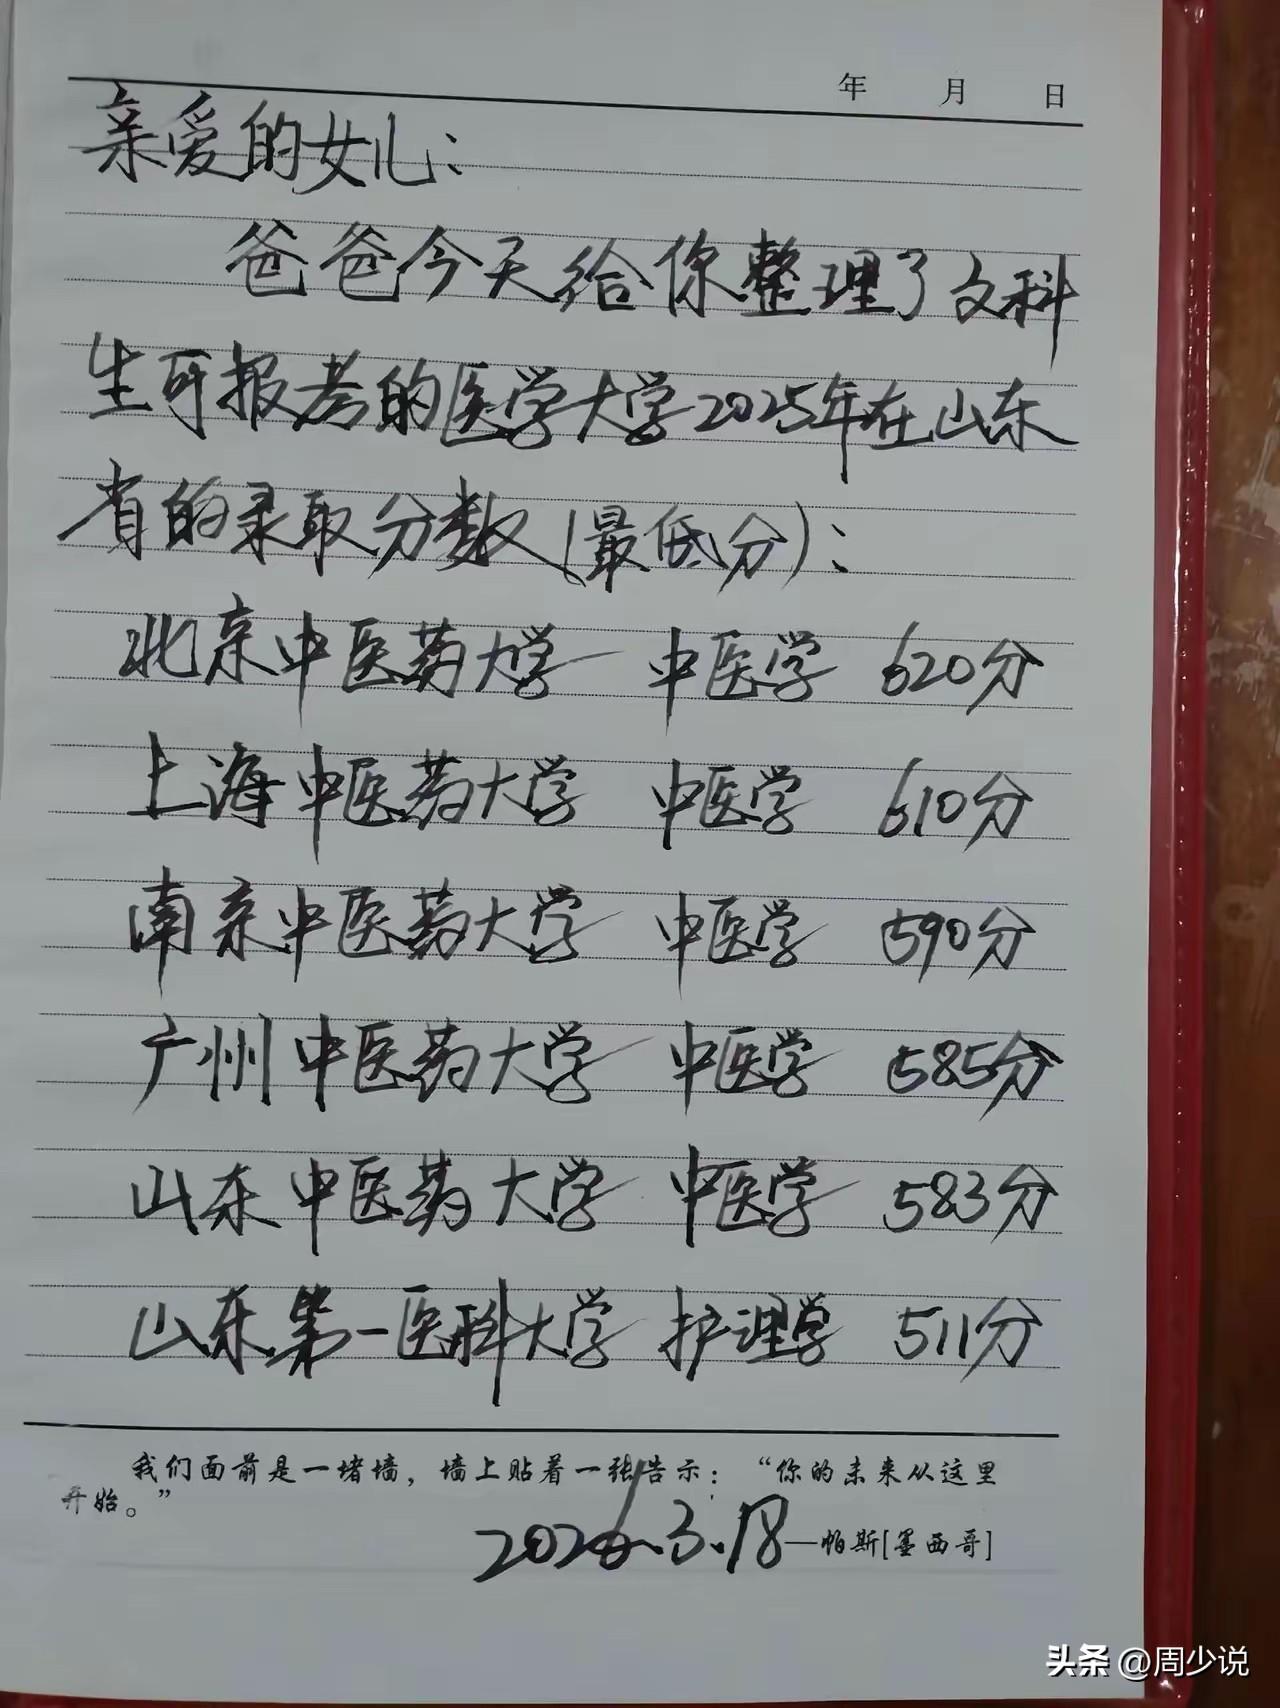 年 月 日
亲爱的女儿：
爸爸今天给你整理了文科
生可报考的医学大学2025年在山东
省的录取分数（最低分）：
北京中医药大学 中医学 620分
上海中医药大学 中医学 610分
南京中医药大学 中医学 590分
广州中医药大学 中医学 585分
山东中医药大学 中医学 583分
山东第一医科大学 护理学 511分
我们面前是一堵墙，墙上贴着一张告示：“你的未来从这里
开始。”
2026.3.18
—帕斯[墨西哥]
头条 @周少说